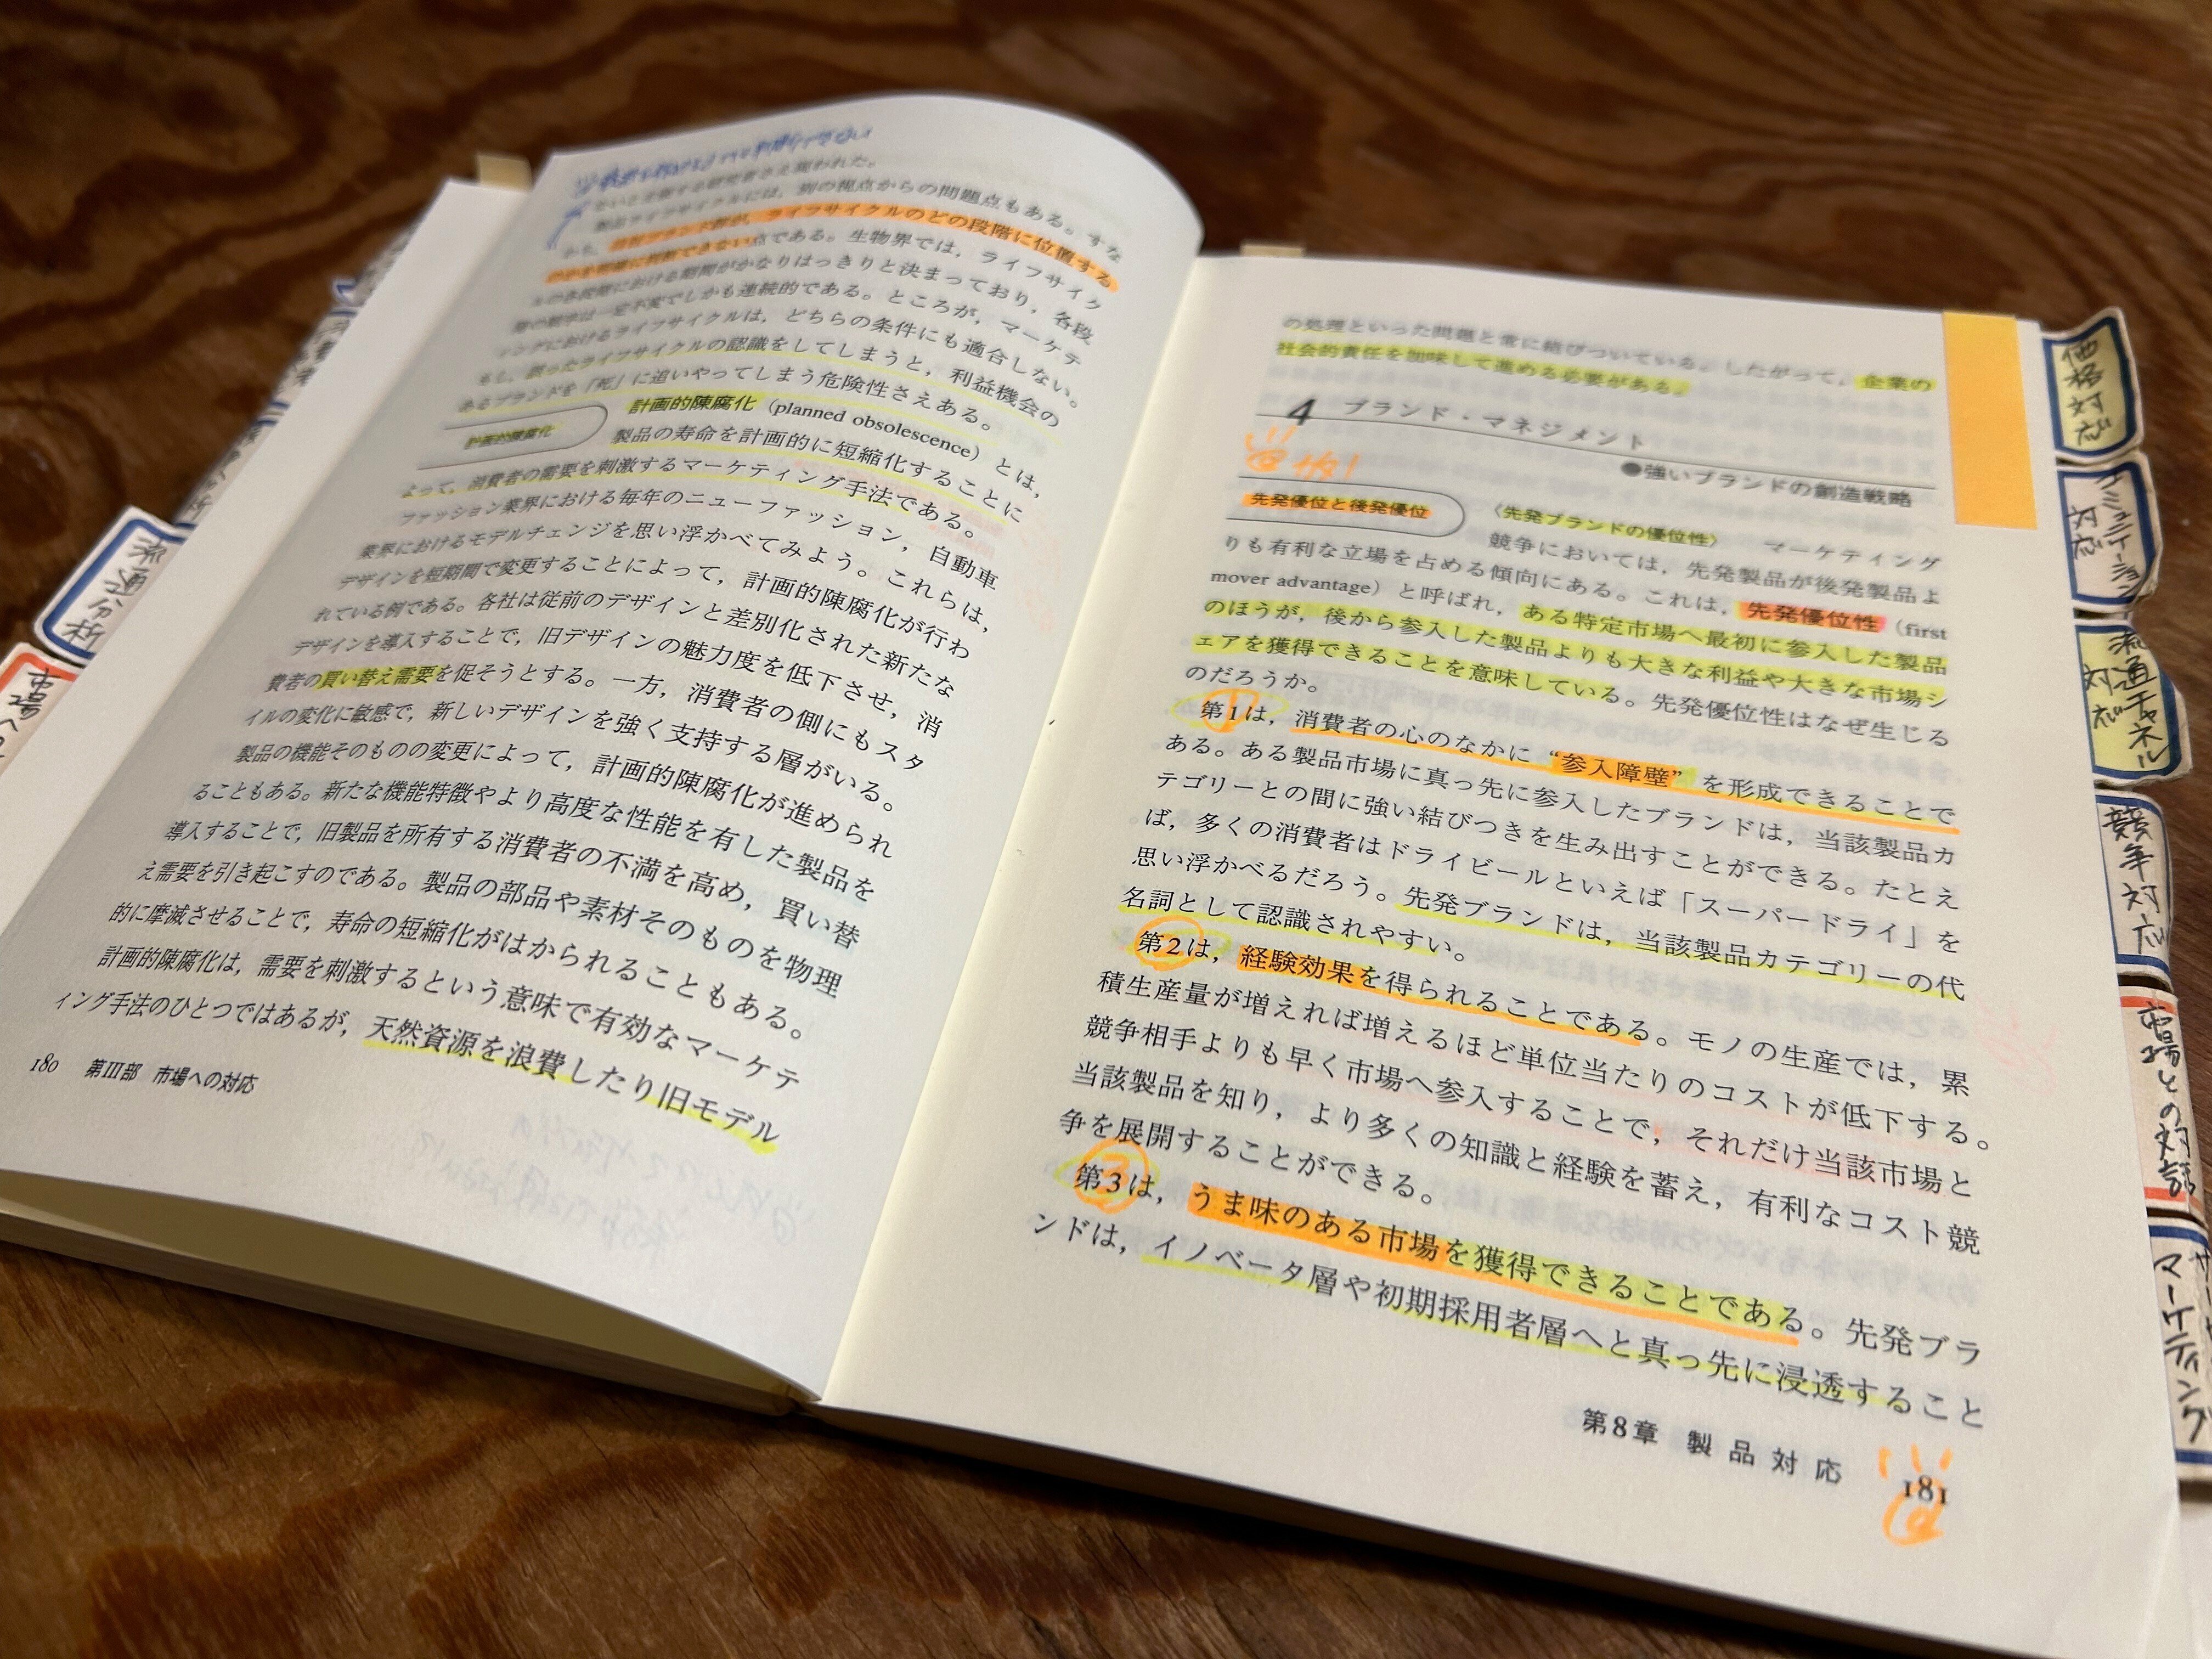 製品ライフサイクルには，別の視点からの問題点もある。すな
わち，ライフサイクルのどの段階に位置する
のかを明確に判断できない点である。生物界では，ライフサイク
ルの各段階における期間がかなりはっきりと決まっており，各段
階の順序は一定不変でしかも連続的である。ところが，マーケテ
ィングにおけるライフサイクルは，どちらの条件にも適合しない。
もし，誤ったライフサイクルの認識をしてしまうと，利益機会の
あるブランドを「死」に追いやってしまう危険性さえある。
計画的陳腐化
計画的陳腐化（planned obsolescence）とは，
製品の寿命を計画的に短縮化することに
よって，消費者の需要を刺激するマーケティング手法である。
ファッション業界における毎年のニューファッション，自動車
業界におけるモデルチェンジを思い浮かべてみよう。これらは，
デザインを短期間で変更することによって，計画的陳腐化が行わ
れている例である。各社は従前のデザインと差別化された新たな
デザインを導入することで，旧デザインの魅力度を低下させ，消
費者の買い替え需要を促そうとする。一方，消費者の側にもスタ
イルの変化に敏感で，新しいデザインを強く支持する層がいる。
製品の機能そのものの変更によって，計画的陳腐化が進められ
ることもある。新たな機能特徴やより高度な性能を有した製品を
導入することで，旧製品を所有する消費者の不満を高め，買い替
え需要を引き起こすのである。製品の部品や素材そのものを物理
的に摩滅させることで，寿命の短縮化がはかられることもある。
計画的陳腐化は，需要を刺激するという意味で有効なマーケテ
ィング手法のひとつではあるが，天然資源を浪費したり旧モデル
180 第III部 市場への対応
の処理といった問題と常に結びついている。したがって，企業の
社会的責任を加味して進める必要がある。
4 ブランド・マネジメント
●強いブランドの創造戦略
先発優位と後発優位
〈先発ブランドの優位性〉 マーケティング
競争においては，先発製品が後発製品よ
りも有利な立場を占める傾向にある。これは，先発優位性（first
mover advantage）と呼ばれ，ある特定市場へ最初に参入した製品
のほうが，後から参入した製品よりも大きな利益や大きな市場シ
ェアを獲得できることを意味している。先発優位性はなぜ生じる
のだろうか。
第1は，消費者の心のなかに“参入障壁”を形成できることで
ある。ある製品市場に真っ先に参入したブランドは，当該製品カ
テゴリーとの間に強い結びつきを生み出すことができる。たとえ
ば，多くの消費者はドライビールといえば「スーパードライ」を
思い浮かべるだろう。先発ブランドは，当該製品カテゴリーの代
名詞として認識されやすい。
第2は，経験効果を得られることである。モノの生産では，累
積生産量が増えれば増えるほど単位当たりのコストが低下する。
競争相手よりも早く市場へ参入することで，それだけ当該市場と
当該製品を知り，より多くの知識と経験を蓄え，有利なコスト競
争を展開することができる。
第3は，うま味のある市場を獲得できることである。先発ブラ
ンドは，イノベータ層や初期採用者層へと真っ先に浸透すること
第8章 製品対応 181
価格対応
コミュニケーション対応
流通チャネル対応
競争対応
市場との対話
マーケティング
流通分析
市場へ